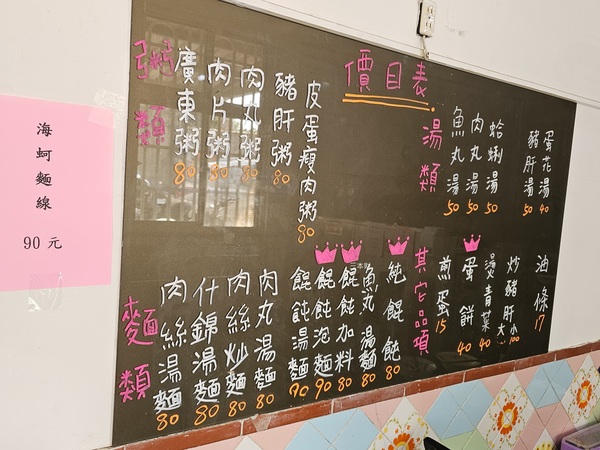 海蚵麵線
90元
價目表
粥類
廣東粥 80
肉片粥 80
肉丸粥 80
豬肝粥 80
皮蛋瘦肉粥 80
湯類
魚丸湯 50
肉丸湯 50
蛤蜊湯 50
豬肝湯 50
蛋花湯 40
麵類
肉絲湯麵 80
什錦湯麵 80
肉絲炒麵 80
肉丸湯麵 80
餛飩湯麵 90
餛飩泡麵 90
餛飩加料 80
魚丸湯麵 80
純餛飩 80
其它品項
煎蛋 15
蛋餅 40
燙青菜 40
炒豬肝 大小 100
油條 17